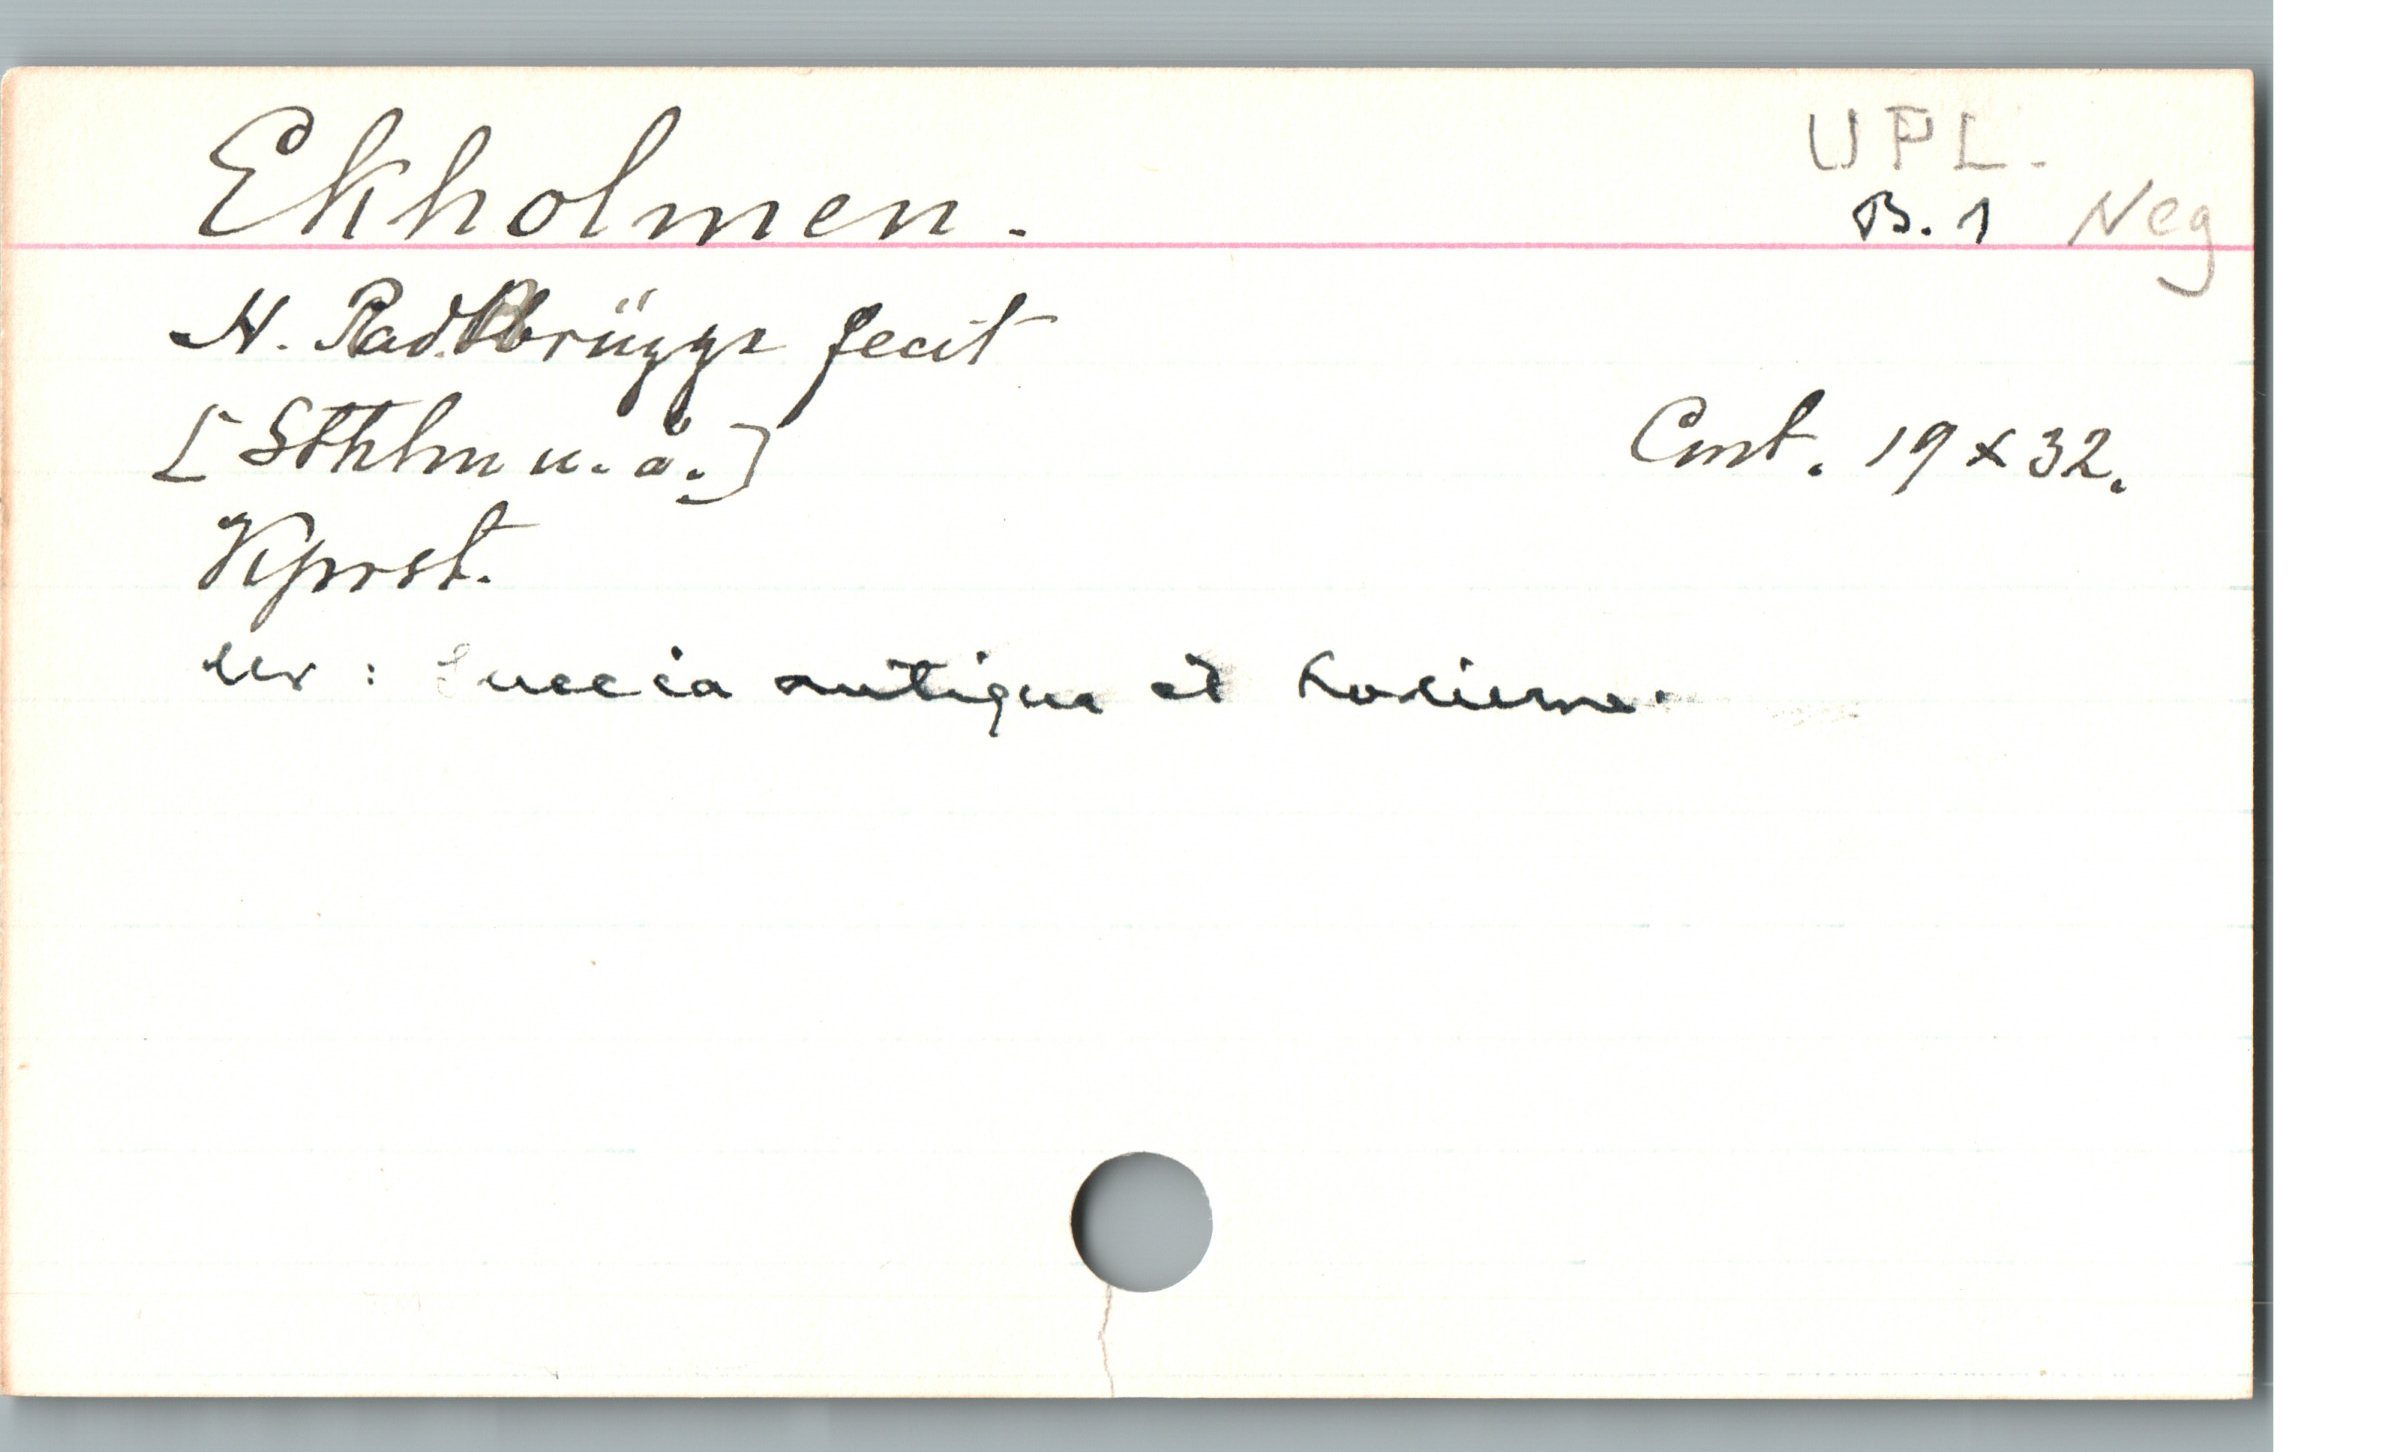 Ekholmen.
UPL.
B. 1 Neg
H. Padtbrügge fecit
[Sthlm u. å.]
Cmt. 19 x 32.
Kprst.
Ur: Suecia antiqua et hodierna.